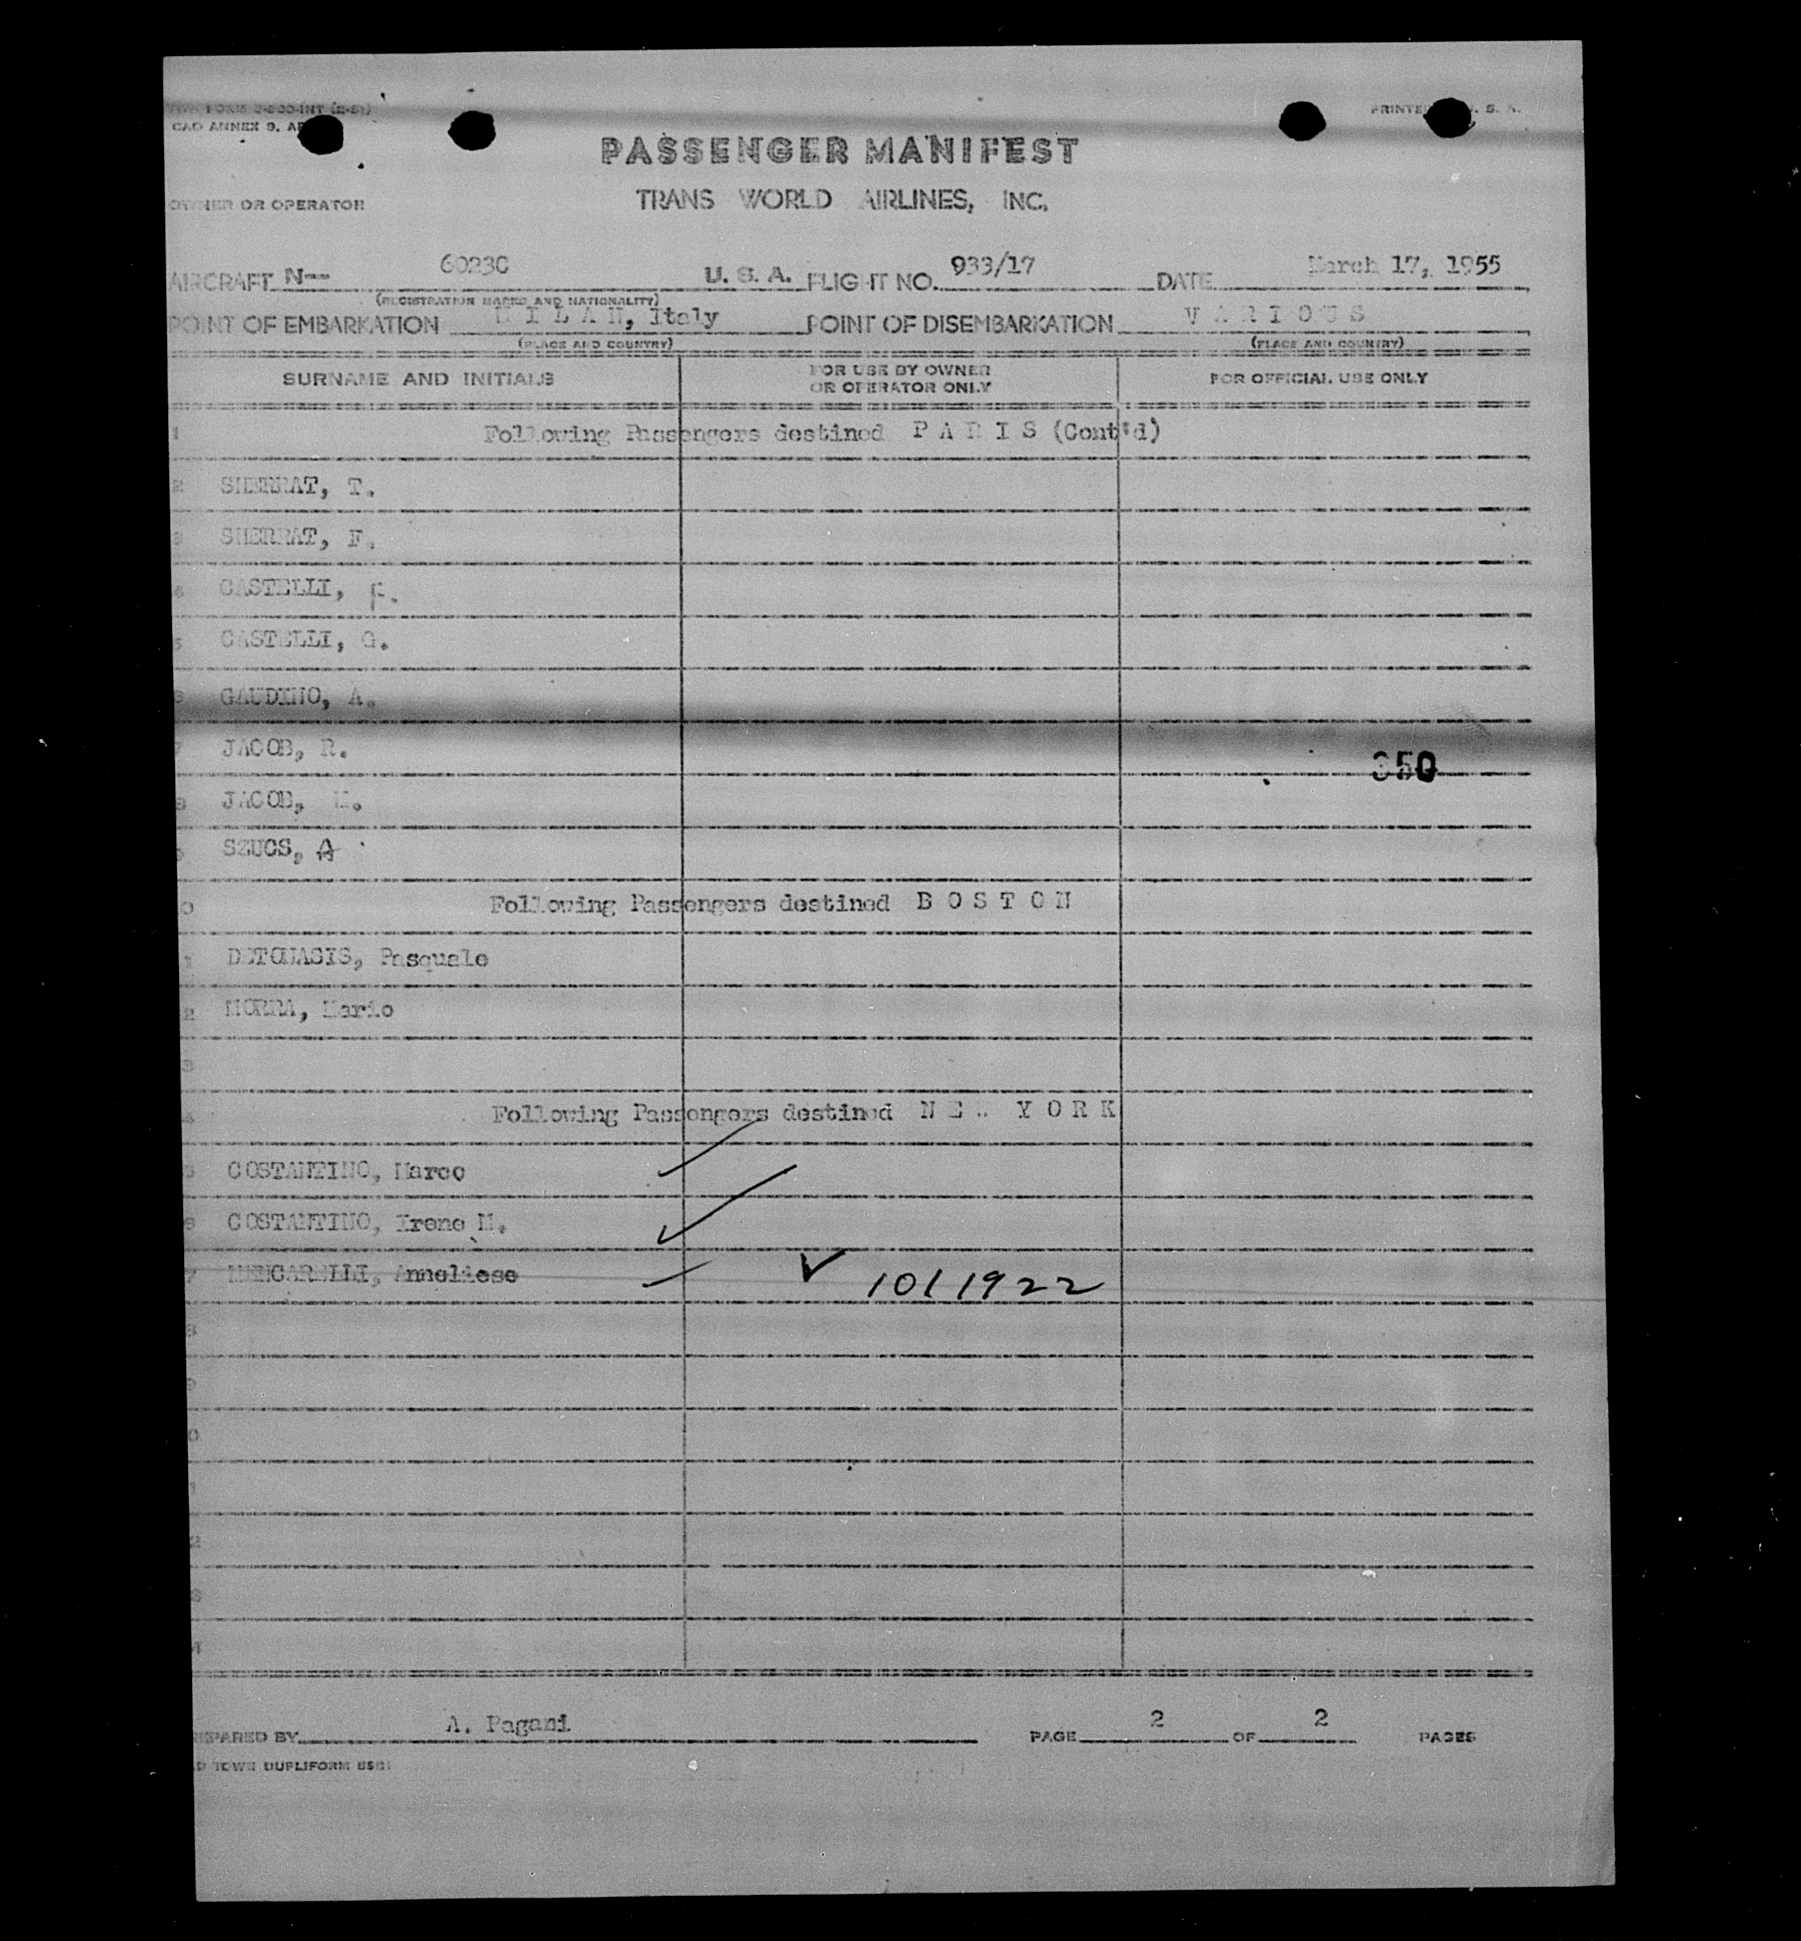 TWA FORM
CAO ANNEX 9,
PRINTED U. S. A.
PASSENGER MANIFEST
OWNER OR OPERATOR
TRANS WORLD AIRLINES, INC.
AIRCRAFT N-- 6023C U. S. A. FLIGHT NO. 933/17 DATE March 17, 1955
(REGISTRATION MARKS AND NATIONALITY)
POINT OF EMBARKATION M I L A N, Italy POINT OF DISEMBARKATION V A R I O U S
(PLACE AND COUNTRY) (PLACE AND COUNTRY)
SURNAME AND INITIALS FOR USE BY OWNER OR OPERATOR ONLY FOR OFFICIAL USE ONLY
1 Following Passengers destined P A R I S (Cont'd)
2 SHERRAT, T.
3 SHERRAT, F.
4 CASTELLI, F.
5 CASTELLI, G.
6 GAUDINO, A.
7 JACOB, R.
350
8 JACOB, M.
9 SZUCS, A
0 Following Passengers destined B O S T O N
1 DETOMASIS, Pasquale
2 MORRA, Mario
3
4 Following Passengers destined N E W Y O R K
5 COSTANTINO, Marco
6 COSTANTINO, Irene M.
7 MENCARELLI, Anneliese ✓ 10/1922
8
9
0
1
2
3
4
PREPARED BY A. Pagani PAGE 2 OF 2 PAGES
TOWN DUPLIFORM